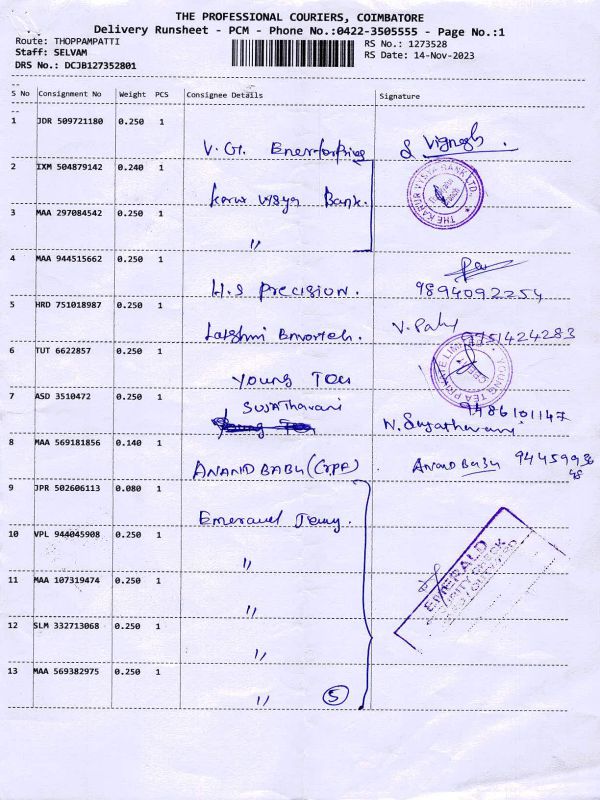 THE PROFESSIONAL COURIERS, COIMBATORE
Delivery Runsheet - PCM - Phone No.:0422-3505555 - Page No.:1
Route: THOPPAMPATTI
RS No.: 1273528
Staff: SELVAM
RS Date: 14-Nov-2023
DRS No.: DCJB127352801
S No Consignment No Weight PCS Consignee Details Signature
1 JDR 509721180 0.250 1
V. G. Enerforprise Vignesh
2 IXM 504879142 0.240 1
Karur Vysya Bank. THE KARUR VYSYA BANK LTD.
3 MAA 297084542 0.250 1
"
4 MAA 944515662 0.250 1
H.S Precision. 9894092254
5 HRD 751018987 0.250 1
Lakshmi V. 9751424283
6 TUT 6622857 0.250 1
Young Tea YOUNG TEA PRIVATE LIMITED
7 ASD 3510472 0.250 1
Sujatharani 9486101147
N. Sujatharani
8 MAA 569181856 0.140 1
ANAND BABU Anand Babu 94459936
48
9 JPR 502606113 0.080 1
Emerald
10 VPL 944045908 0.250 1
"
EMERALD
SECURITY CHECK
11 MAA 107319474 0.250 1
"
12 SLM 332713068 0.250 1
"
13 MAA 569382975 0.250 1
" 5